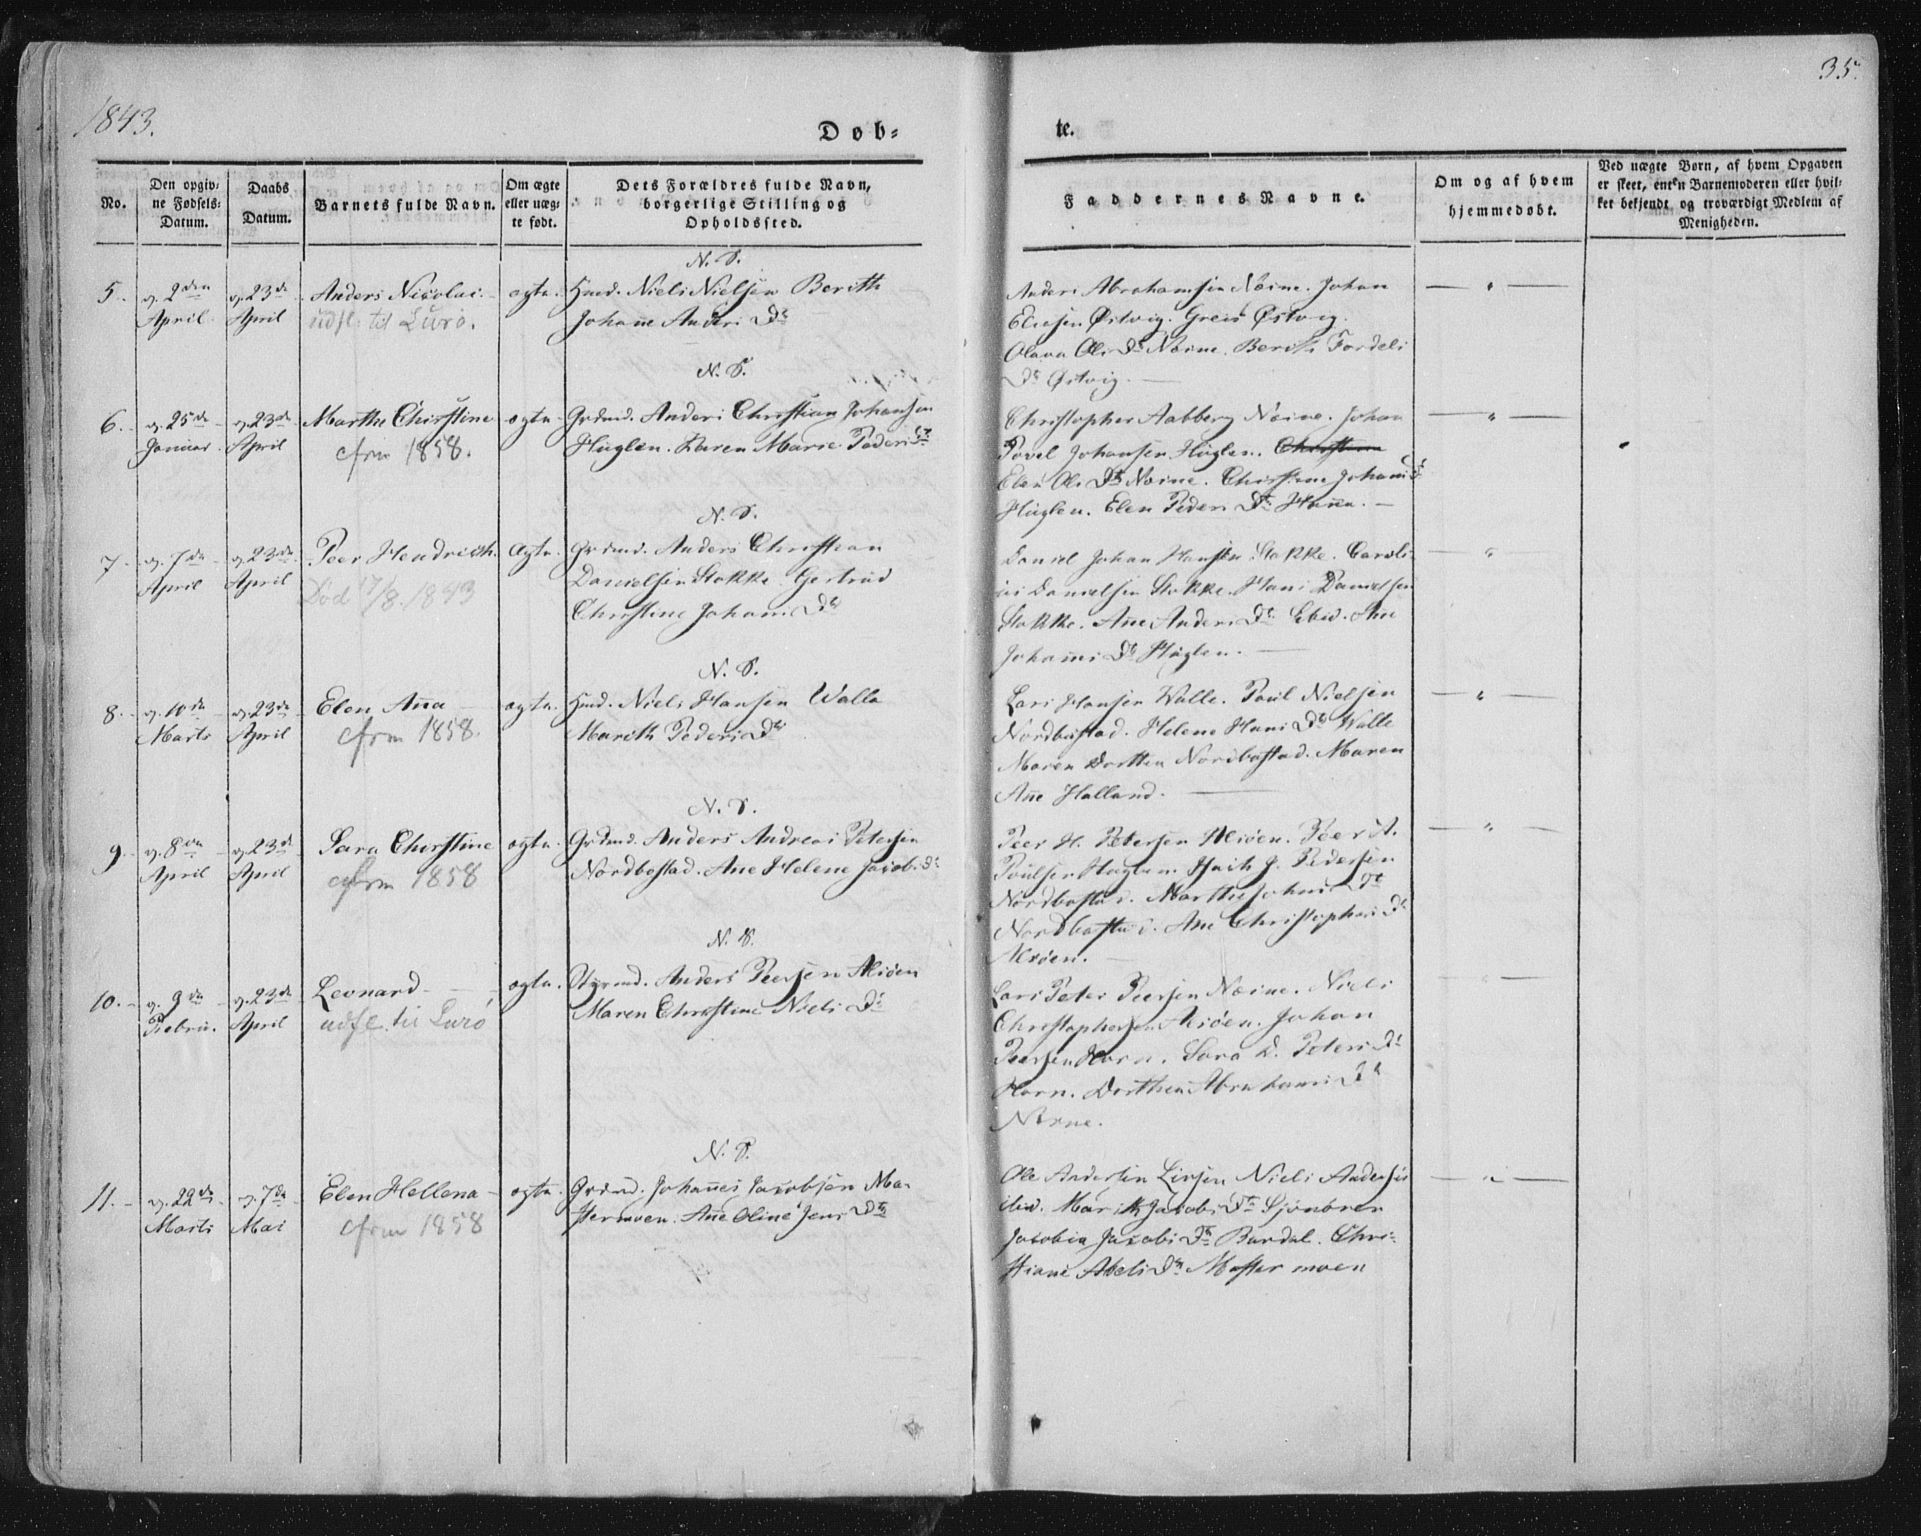 1843.
35.
Døb=
te.
No.
Den opgiv=
ne Fødsels=
Datum.
Daabs
Datum.
Barnets fulde Navn.
Om ægte
eller uæg=
te født.
Dets Forældres fulde Navn,
borgerlige Stilling og
Opholdssted.
Faddernes Navne.
Om og af hvem
hjemmedøbt.
Ved uægte Børn, af hvem Opgaven
er skeet, enten Barnemoderen eller hvil=
ket bekjendt og troværdigt Medlem af
Menigheden.
N. S.
5. d. 2den April. d. 23de April Anders Nicolai. ægte. Hmd. Niels Nielsen Berith
udfl. til Lurö. Johanne Anders Dtr
Anders Abrahamsen Næsne. Johan
Eliesen Østvig. Greis Østvig.
Olava Ols Dtr Næsne. Berith Tordels
Dtr Østvig.
N. S.
6. d. 25de Januar. d. 23de April Marthe Christine ægte Grdmd. Anders Christian Johansen
cfrm 1858. Hüglen. Karen Marie Peders Dtr
Christopher Aabberg Næsne. Johan
Povel Johansen Hüglen.
Elen Ols Dtr Næsne. Christine Johans Dtr
Hüglen. Elen Peders Dtr
N. S.
7. d. 7de April d. 23de April Peer Hendrich. Ægte. Grdmd. Anders Christian
Død 17/8. 1843 Danielsen Stokke. Gertrud
Christine Johans Dtr
Daniel Johan Hansen Stokke. Caroli=
us Danielsen Stokke. Hans Danielsen
Stokke. Ane Anders Dtr Ibid. Ane
Johans Dtr Hüglen.
N. S.
8. d. 10de Marts d. 23de April Elen Anna ægte. Hmd. Niels Hansen Valla
cfrm 1858. Marith Peders Dtr
Lars Hansen Walle. Poul Nielsen
Nordbostad. Helene Hans Dtr Walle
Maren Dorthea Nordbostad. Maren
Ane Halland.
N. S.
9. d. 8de April d. 23de April Sara Christine ægte. Grdmd. Anders Andreas Petersen
cfrm 1858 Nordbostad. Ane Helene Jacobs Dtr
Peer H. Petersen Alsöen. Peer A.
Poulsen Huglen. Isach J. Pedersen
Nordbostad. Marthe Johans Dtr
Nordbostad. Ane Christophers Dtr
Alsöen.
N. S.
10. d. 9de Febru. d. 23de April Leonard ægte. Styrmd. Anders Peersen Alsöen
udfl. til Lurö Maren Christine Niels Dtr
Lars Peter Peersen Næsne. Niels
Christophersen Alsöen. Johan
Peersen Horn. Sara D. Peters Dtr
Horn. Dorthea Abrahams Dtr
Næsne.
N. S.
11. d. 22de Marts d. 7de Mai Elen Hellena ægte. Grdmd. Johannes Jacobsen Ma=
cfrm 1858 stermoen. Ane Oline Jens Dtr
Ole Andersen Niels Andersen
ibid. Marith Jacobs Dtr
Jacobia Jacobs Dtr Bardal. Chri=
stiane Abels Dtr Mastermoen